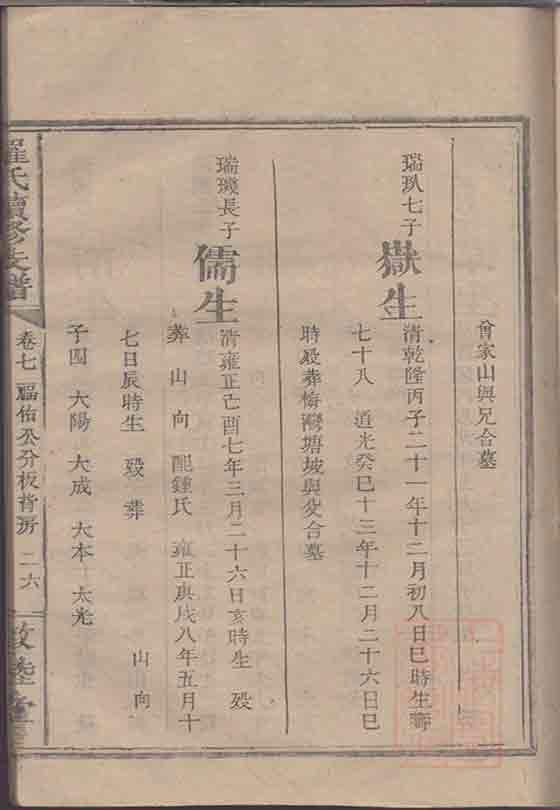 曾家山與兄合墓
瑞玖七子
嶽生
清乾隆丙子二十一年十二月初八日巳時生壽
七十八 道光癸巳十三年十二月二十六日巳
時殁葬梅灣塘坡與父合墓
瑞璣長子
儒生
清雍正己酉七年三月二十六日亥時生 殁
葬 山 向 配鍾氏 雍正庚戌八年五月十
七日辰時生 殁 葬 山 向
子四 大陽 大成 大本 大光
羅氏續修支譜
卷七 福佑公分板背房 二六
敦睦堂